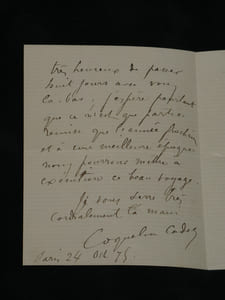 très heureux de passer
huit jours avec vous
là-bas. j'espère pourtant
que ce n'est que partie
remise que l'année prochaine
et à une meilleure époque
nous pourrons mettre à
exécution ce beau voyage.
Je vous serre très
cordialement la main
Coquelin Cadet
Paris 24 Oct 75.